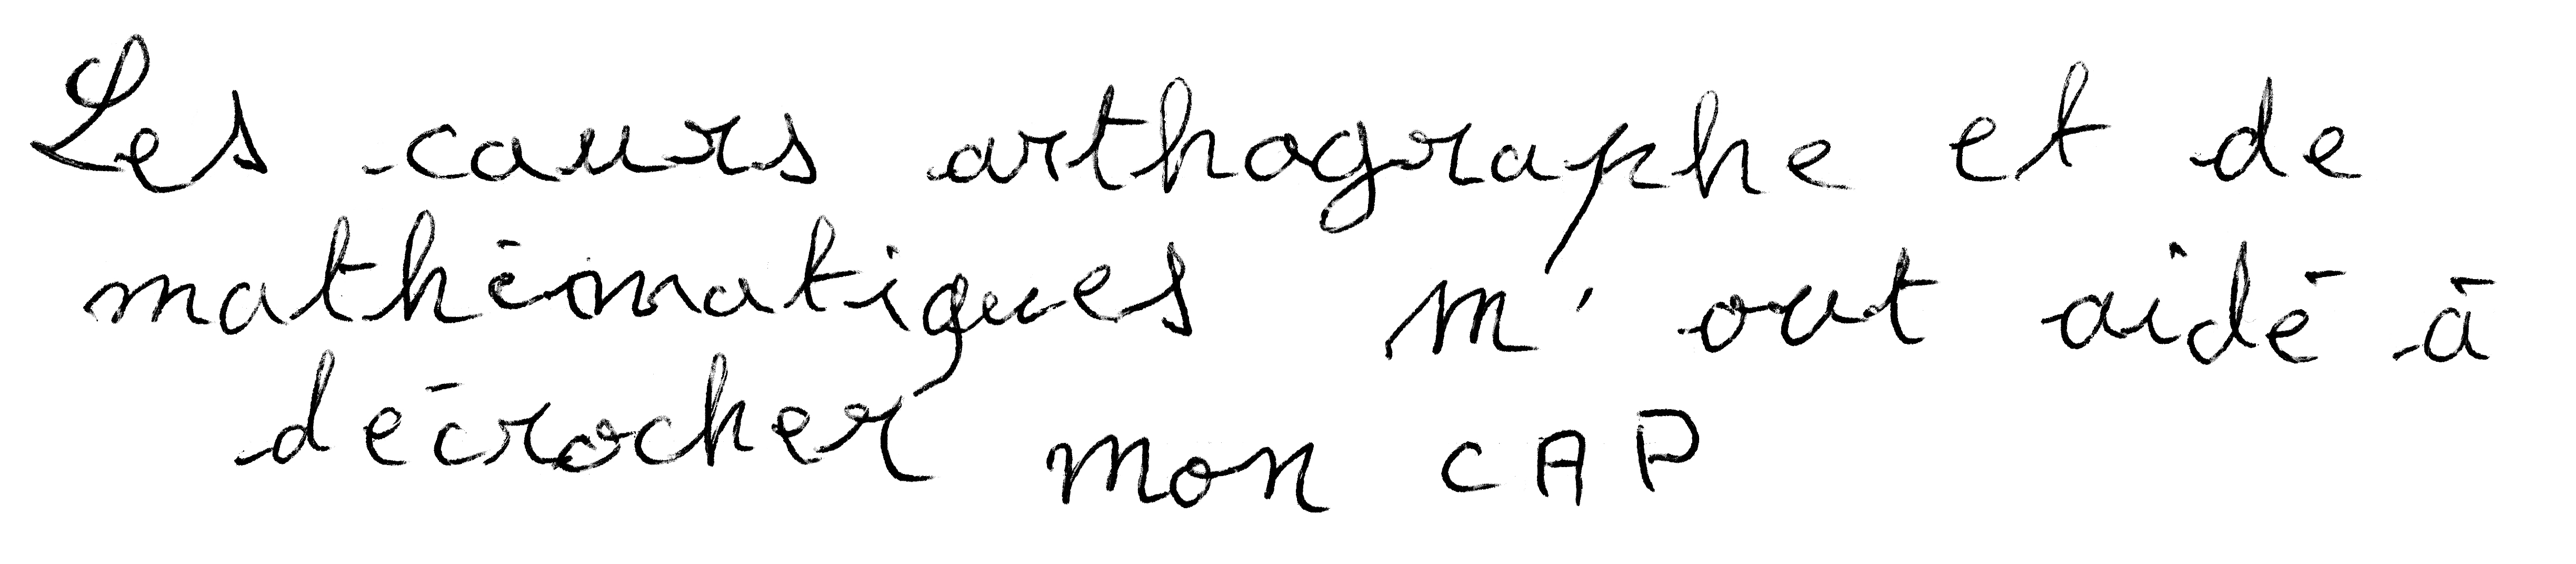 Les cours orthographe et de
mathématiques m'ont aidé à
décrocher mon CAP